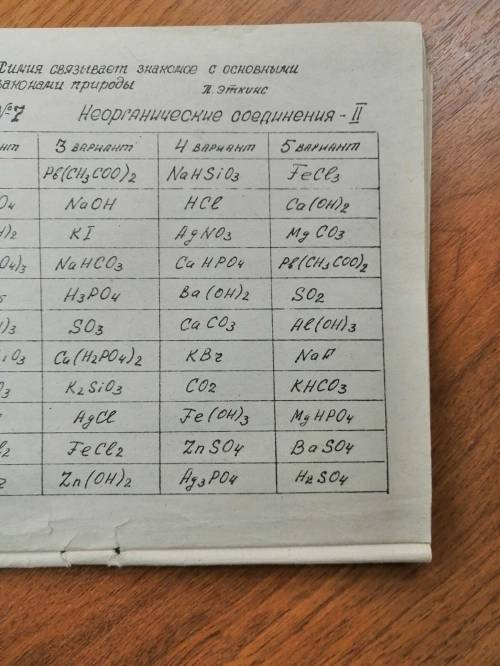 Химия связывает знакомое с основными
законами природы П. Эткинс
№7 Неорганические соединения - II
нт 3 вариант 4 вариант 5 вариант
Pb(CH3COO)2 NaHSiO3 FeCl3
O4 NaOH HCl Ca(OH)2
H)2 KI AgNO3 MgCO3
O4)3 NaHCO3 CaHPO4 Pb(CH3COO)2
H3PO4 Ba(OH)2 SO2
H)3 SO3 CaCO3 Al(OH)3
iO3 Ca(H2PO4)2 KBr NaF
O3 K2SiO3 CO2 KHCO3
AgCl Fe(OH)3 MgHPO4
l2 FeCl2 ZnSO4 BaSO4
Zn(OH)2 Ag3PO4 H2SO4